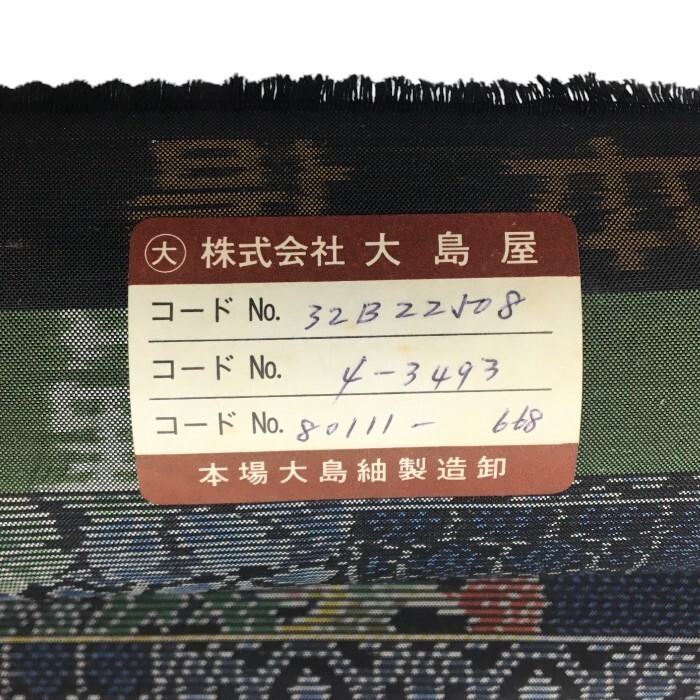 大 株式会社 大島屋
コード No. 32B22508
コード No. 4-3493
コード No. 80111- 668
本場大島紬製造卸